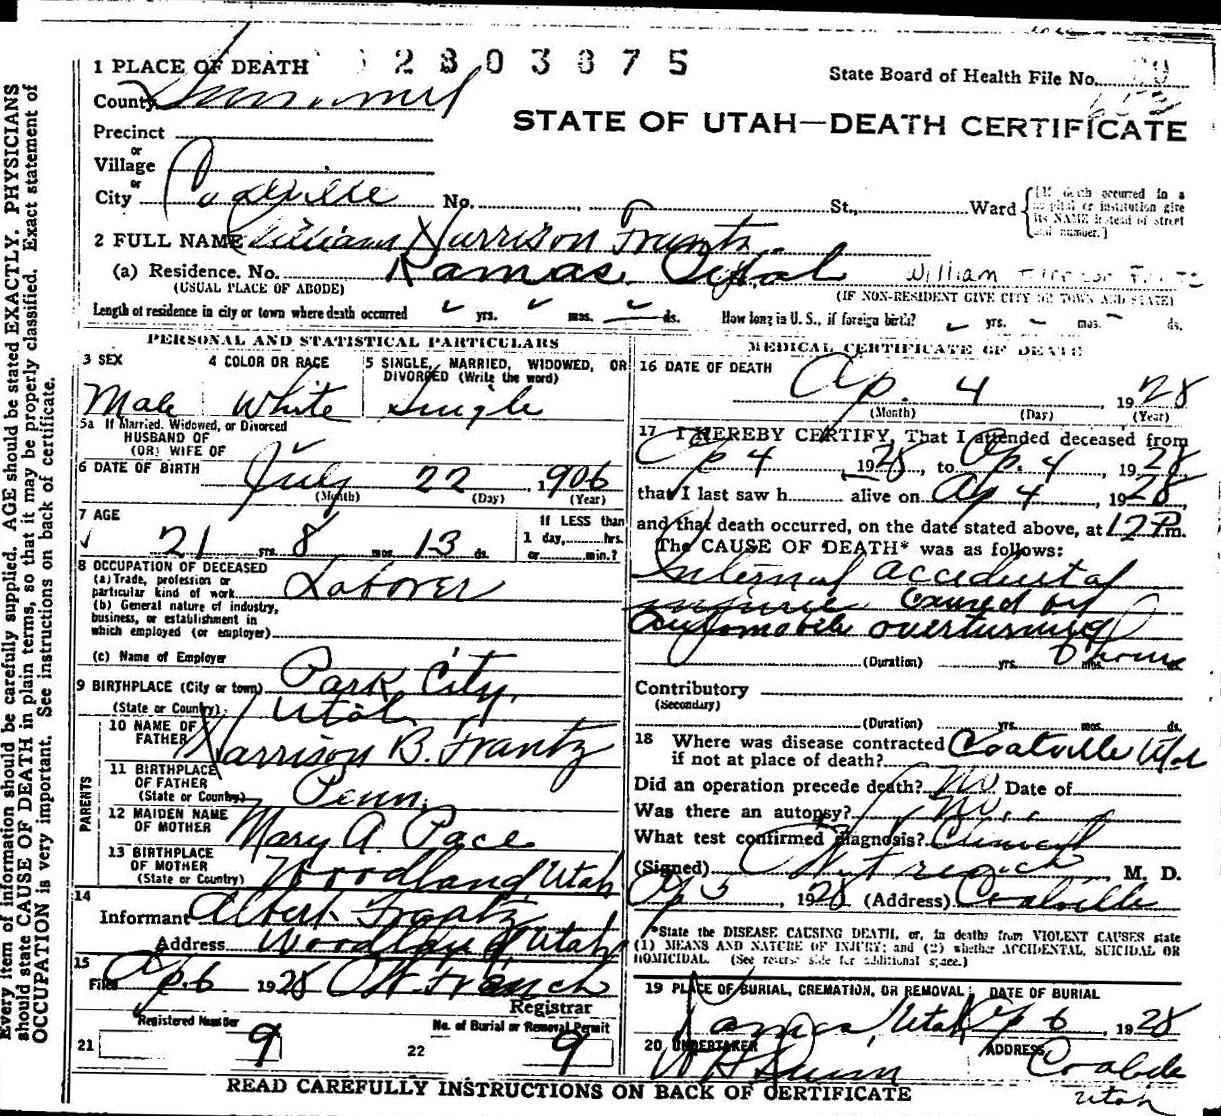 Every item of information should be carefully supplied. AGE should be stated EXACTLY. PHYSICIANS
should state CAUSE OF DEATH in plain terms, so that it may be properly classified. Exact statement of
OCCUPATION is very important. See instructions on back of certificate.
1 PLACE OF DEATH 2303875 State Board of Health File No.
County Summit
STATE OF UTAH—DEATH CERTIFICATE
Precinct
or
Village
or
City Coalville No. St., Ward
(If death occurred in a
hospital or institution give
its NAME instead of street
and number.)
2 FULL NAME William Harrison Frantz
(a) Residence. No. Kamas Utah
(USUAL PLACE OF ABODE) (IF NON-RESIDENT GIVE CITY OR TOWN AND STATE)
Length of residence in city or town where death occurred yrs. mos. ds. How long in U. S., if foreign birth? yrs. mos. ds.
PERSONAL AND STATISTICAL PARTICULARS
3 SEX 4 COLOR OR RACE 5 SINGLE, MARRIED, WIDOWED, OR
DIVORCED (Write the word)
Male White Single
5a If Married, Widowed, or Divorced
HUSBAND OF
(OR) WIFE OF
6 DATE OF BIRTH July 22, 1906
(Month) (Day) (Year)
7 AGE If LESS than
21 yrs. 8 mos. 13 ds. 1 day, hrs.
or min.?
8 OCCUPATION OF DECEASED
(a) Trade, profession or
particular kind of work Laborer
(b) General nature of industry,
business, or establishment in
which employed (or employer)
(c) Name of Employer
9 BIRTHPLACE (City or town) Park City,
(State or Country) Utah
PARENTS
10 NAME OF
FATHER Harrison B. Frantz
11 BIRTHPLACE
OF FATHER
(State or Country) Penn.
12 MAIDEN NAME
OF MOTHER Mary A. Pace
13 BIRTHPLACE
OF MOTHER
(State or Country) Woodland Utah
14
Informant Albert Frantz
Address Woodland Utah
15
Filed Ap. 6 1928
Registrar
Registered Number No. of Burial or Removal Permit
21 9 22 9
MEDICAL CERTIFICATE OF DEATH
16 DATE OF DEATH Ap. 4, 1928
(Month) (Day) (Year)
17 I HEREBY CERTIFY, That I attended deceased from
Ap 4, 1928, to Ap. 4, 1928
that I last saw h alive on Ap 4, 1928
and that death occurred, on the date stated above, at 12 P.m.
The CAUSE OF DEATH* was as follows:
Internal accidental
injurie caused by
automobile overturning
(Duration) yrs. 6 hours
Contributory
(Secondary)
(Duration) yrs. mos. ds.
18 Where was disease contracted
if not at place of death? Coalville Utah
Did an operation precede death? No Date of
Was there an autopsy? No
What test confirmed diagnosis? Clinical
(Signed) M. D.
Ap 5, 1928 (Address) Coalville
*State the DISEASE CAUSING DEATH, or, in deaths from VIOLENT CAUSES state
(1) MEANS AND NATURE OF INJURY; and (2) whether ACCIDENTAL, SUICIDAL OR
HOMICIDAL. (See reverse side for additional space.)
19 PLACE OF BURIAL, CREMATION, OR REMOVAL DATE OF BURIAL
Kamas, Utah Ap 6, 1928
20 UNDERTAKER ADDRESS
Coalville
Utah
READ CAREFULLY INSTRUCTIONS ON BACK OF CERTIFICATE